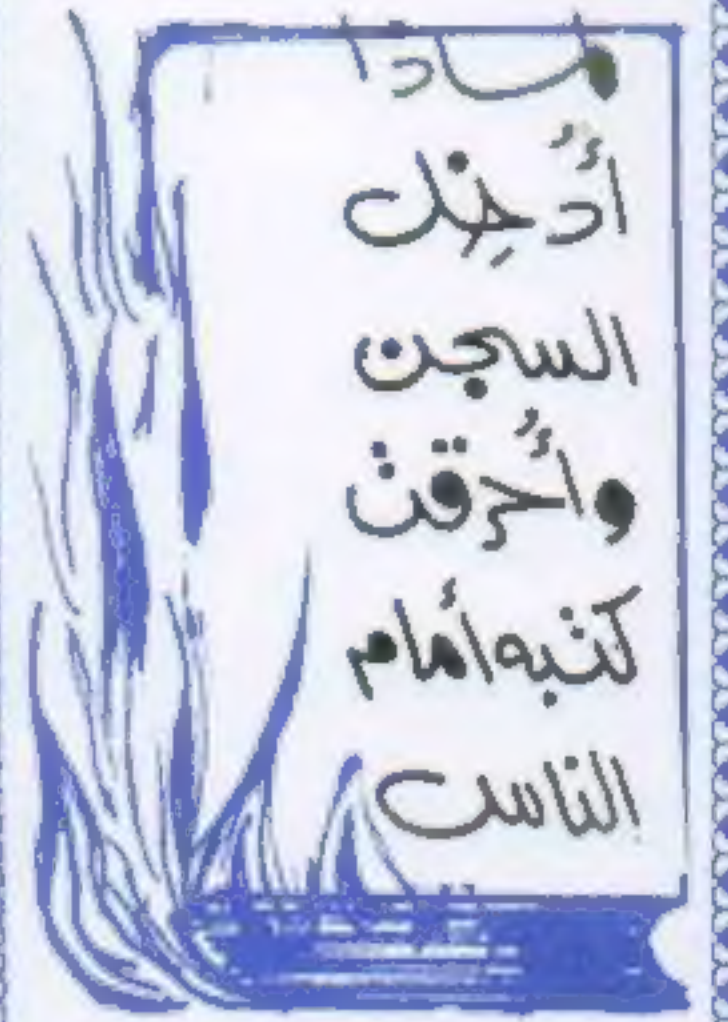 أُدخِل
السجن
وأُحرقت
كتبه أمام
الناس